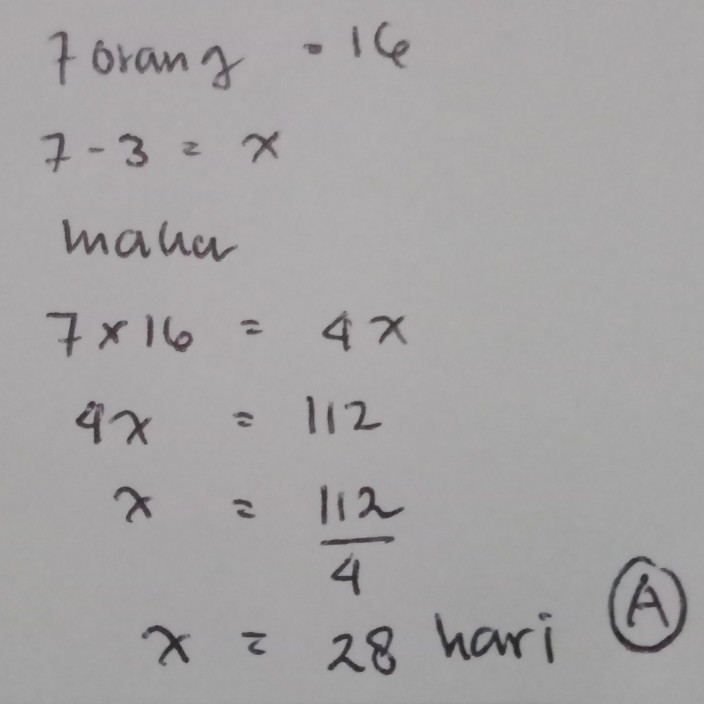 7 orang = 16
7 - 3 = x
maka
7 x 16 = 4x
4x = 112
x = 112/4
x = 28 hari (A)